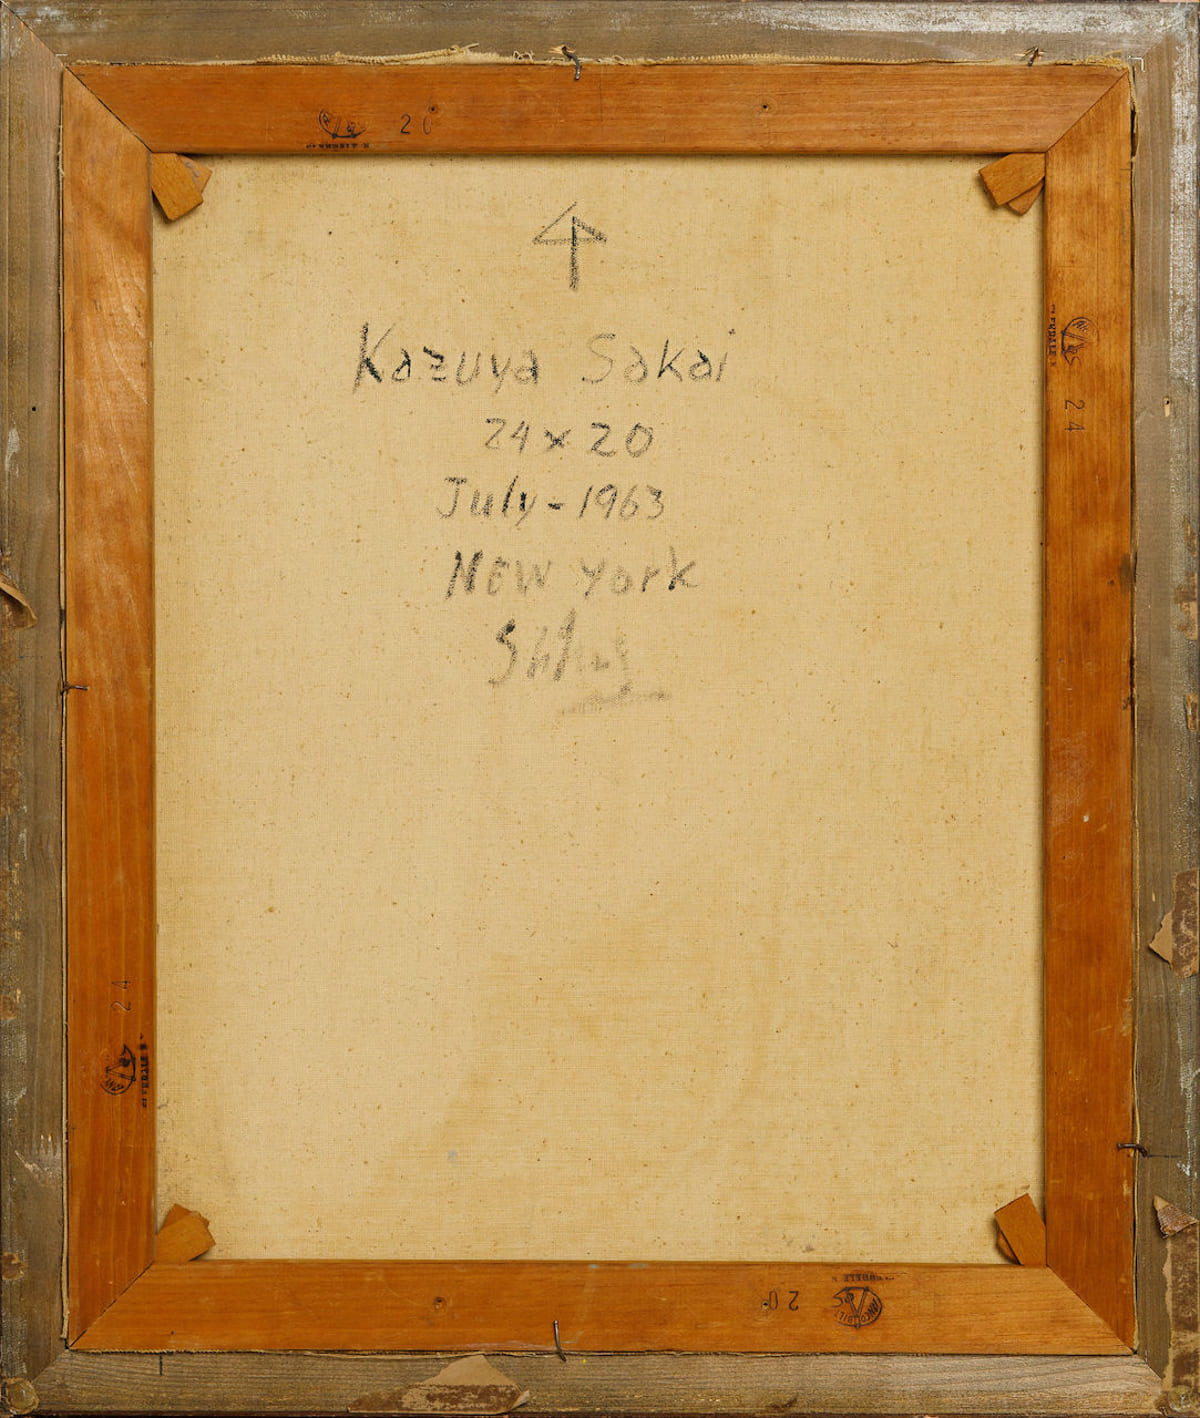 20
Kazuya Sakai
24 x 20
July - 1963
NEW York
24
24
20